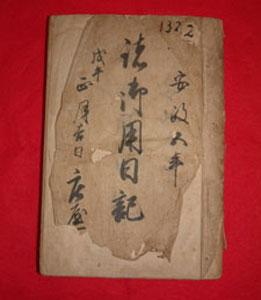 1322
安政五年
諸御用日記
戊午
正月吉日 庄屋